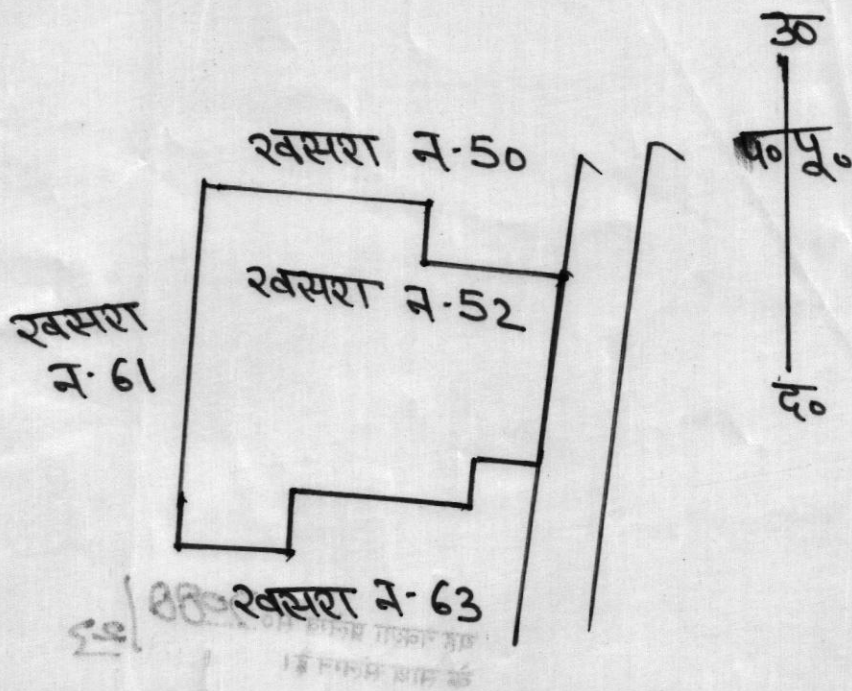 उ०
प० पू०
खसरा न-50
खसरा न-52
खसरा
न-61
द०
खसरा न-63